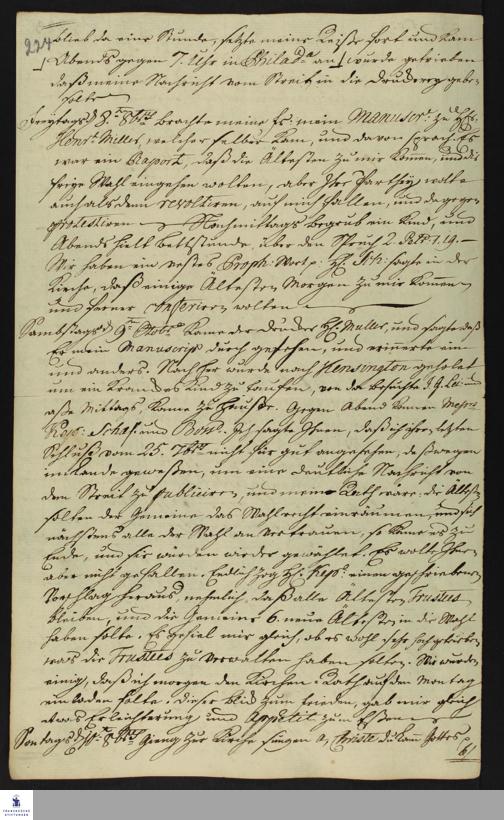 224
blieb da eine Stunde, setzte meine Reise fort und kam
Abends gegen 7. Uhr in Philada an, wurde getrieben
daß meine Nachricht vom Streit in die Druckerey geben
solte
Freytags d 8. 8br brachte meine Fr: mein Manuscr. zu H:
Henr. Miller, welcher selber kam, und davon sprach. Es
war ein Raport, daß die Ältesten zu mir kommen, und die
freye Wahl eingehen wolten, aber ihre Parthey wolte
alsdann revoltiren, auf mich fallen, und dagegen
protestiren Nachmittags begrub ein Kind, und
Abends hielt Bettstunde, über den Spruch 2 Petr 1, 19. –
Wir haben ein vestes Proph: Wort p: H. sagte in der
Kirche, daß einige Ältesten Morgen zu mir kommen
und ferner conferiren wolten
Sambstags d 9. Octobr kam der Drucker H: Muller, und sagte daß
Er mein Manuscript durch gesehen, und erinnerte ein
und anders. Nachher wurde nach Kensington geholet
um ein kranckes Kind zu tauffen, von da besuchte
aße Mittags, kame zu Hause. Gegen Abend kamen Messrs
Kepp: Schaf: und Ich sagte Ihnen, daß ich ihren letzten
Schluß vom 25. 7br nicht für gut angesehen, deßwegen
im Lande gewesen, um eine deutliche Nachricht von
dem Streit zu publiciren, und mein Rath wäre, die Ältesten
solten der Gemeine das Wahlrecht einräumen, und sich
nächstens alle der Wahl an vertrauen, so käme es zu
Ende, und sie würden wieder gewählet. Es wolte Ihnen
aber nicht gefallen. Endlich zog H: Kepp: einen geschriebenen
Vorschlag heraus, nemlich, daß alle Ältesten Trustees
bleiben, und die Gemeine 6. neue Ältesten in die Wahl
haben solte. Es gefiel mir gleich, ob es wohl sehr
was die Trustees zu verwalten haben solten. Wir wurden
einig, daß ich morgen den Kirchen-Rath auf den Montag
einladen solte. Dieser Blick zum Frieden, gab mir gleich
etwas Erleichterung und Appetit zum Essen
Sontags d 10. 8br gieng zur Kirche sungen Christe du Lamm Gottes
FRANCKESCHE
STIFTUNGEN